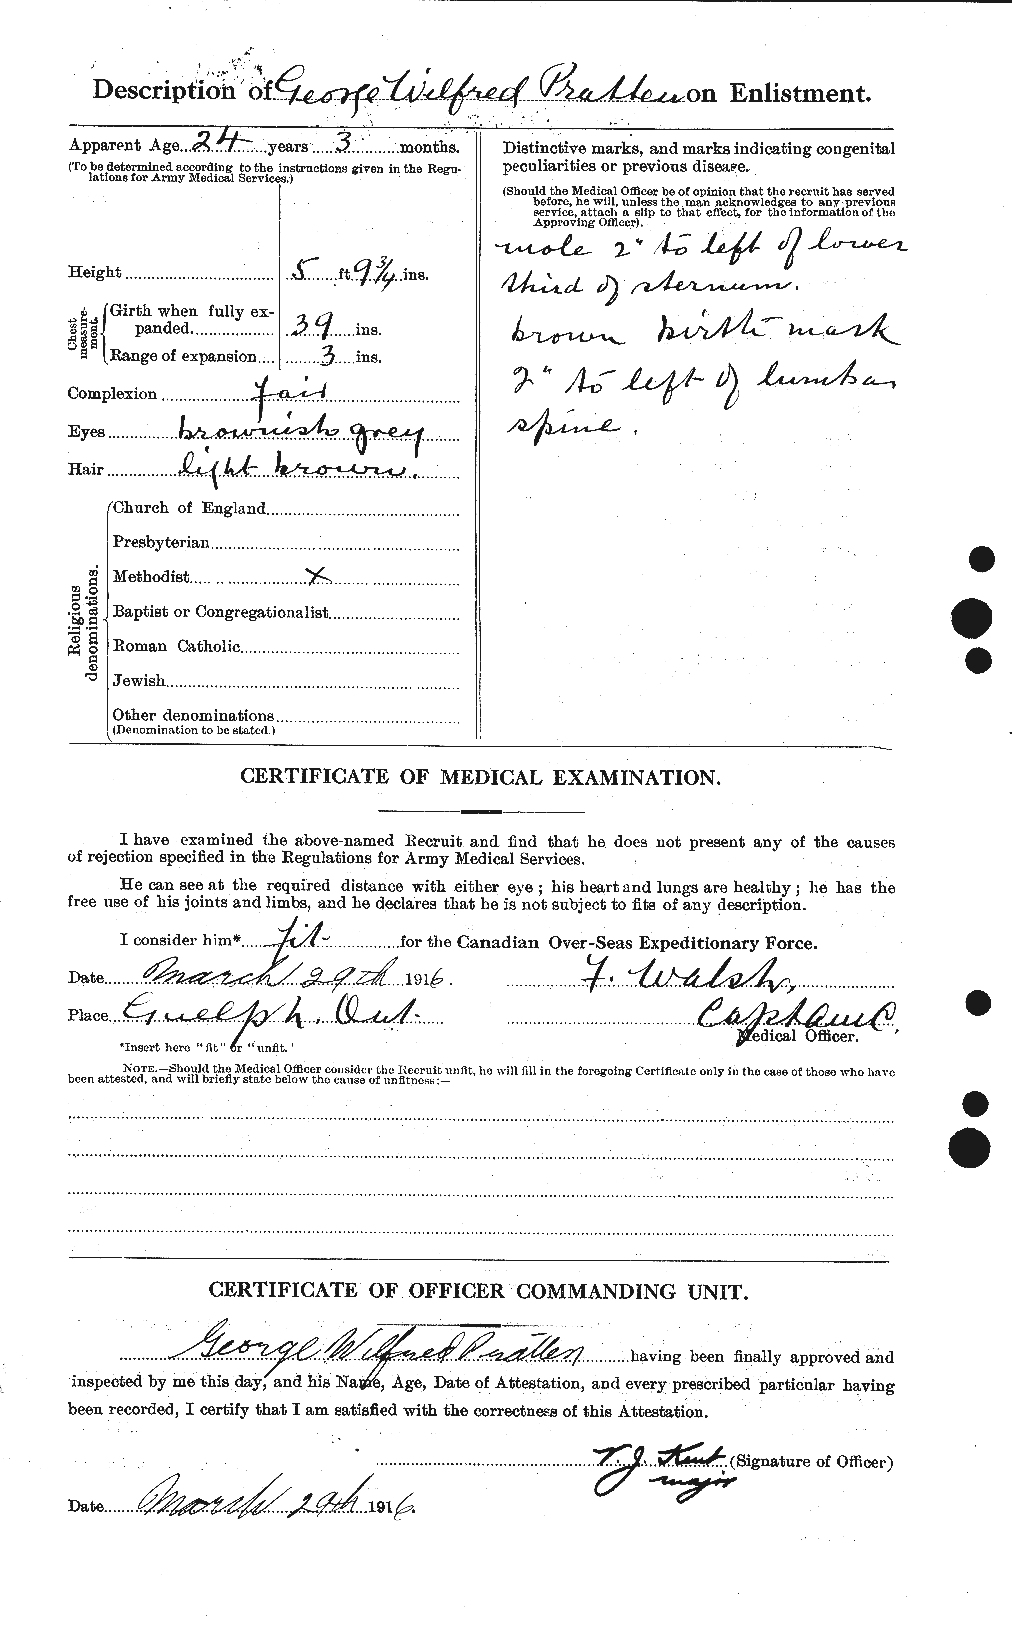 Description of George Wilfred Pratten on Enlistment.
Apparent Age...24...years...3...months.
(To be determined according to the instructions given in the Regu-
lations for Army Medical Services.)
Height...5...ft. 9¾ ins.
Chest measure-
ment.
Girth when fully ex-
panded...39...ins.
Range of expansion...3...ins.
Complexion...fair
Eyes...brownish grey
Hair...light brown.
Religious
denominations.
Church of England...
Presbyterian...
Methodist...X
Baptist or Congregationalist...
Roman Catholic...
Jewish...
Other denominations...
(Denomination to be stated.)
Distinctive marks, and marks indicating congenital
peculiarities or previous disease.
(Should the Medical Officer be of opinion that the recruit has served
before, he will, unless the man acknowledges to any previous
service, attach a slip to that effect, for the information of the
Approving Officer).
mole 2" to left of lower
third of sternum.
brown birth mark
2" to left of lumbar
spine.
CERTIFICATE OF MEDICAL EXAMINATION.
I have examined the above-named Recruit and find that he does not present any of the causes
of rejection specified in the Regulations for Army Medical Services.
He can see at the required distance with either eye; his heart and lungs are healthy; he has the
free use of his joints and limbs, and he declares that he is not subject to fits of any description.
I consider him*...fit...for the Canadian Over-Seas Expeditionary Force.
Date...March 29th 1916.
F. Walsh,
Place...Guelph. Ont.
Captain
Medical Officer.
*Insert here "fit" or "unfit."
NOTE.—Should the Medical Officer consider the Recruit unfit, he will fill in the foregoing Certificate only in the case of those who have
been attested, and will briefly state below the cause of unfitness:—
CERTIFICATE OF OFFICER COMMANDING UNIT.
George Wilfred Pratten...having been finally approved and
inspected by me this day, and his Name, Age, Date of Attestation, and every prescribed particular having
been recorded, I certify that I am satisfied with the correctness of this Attestation.
Kent (Signature of Officer)
major
Date...March 29th 1916.